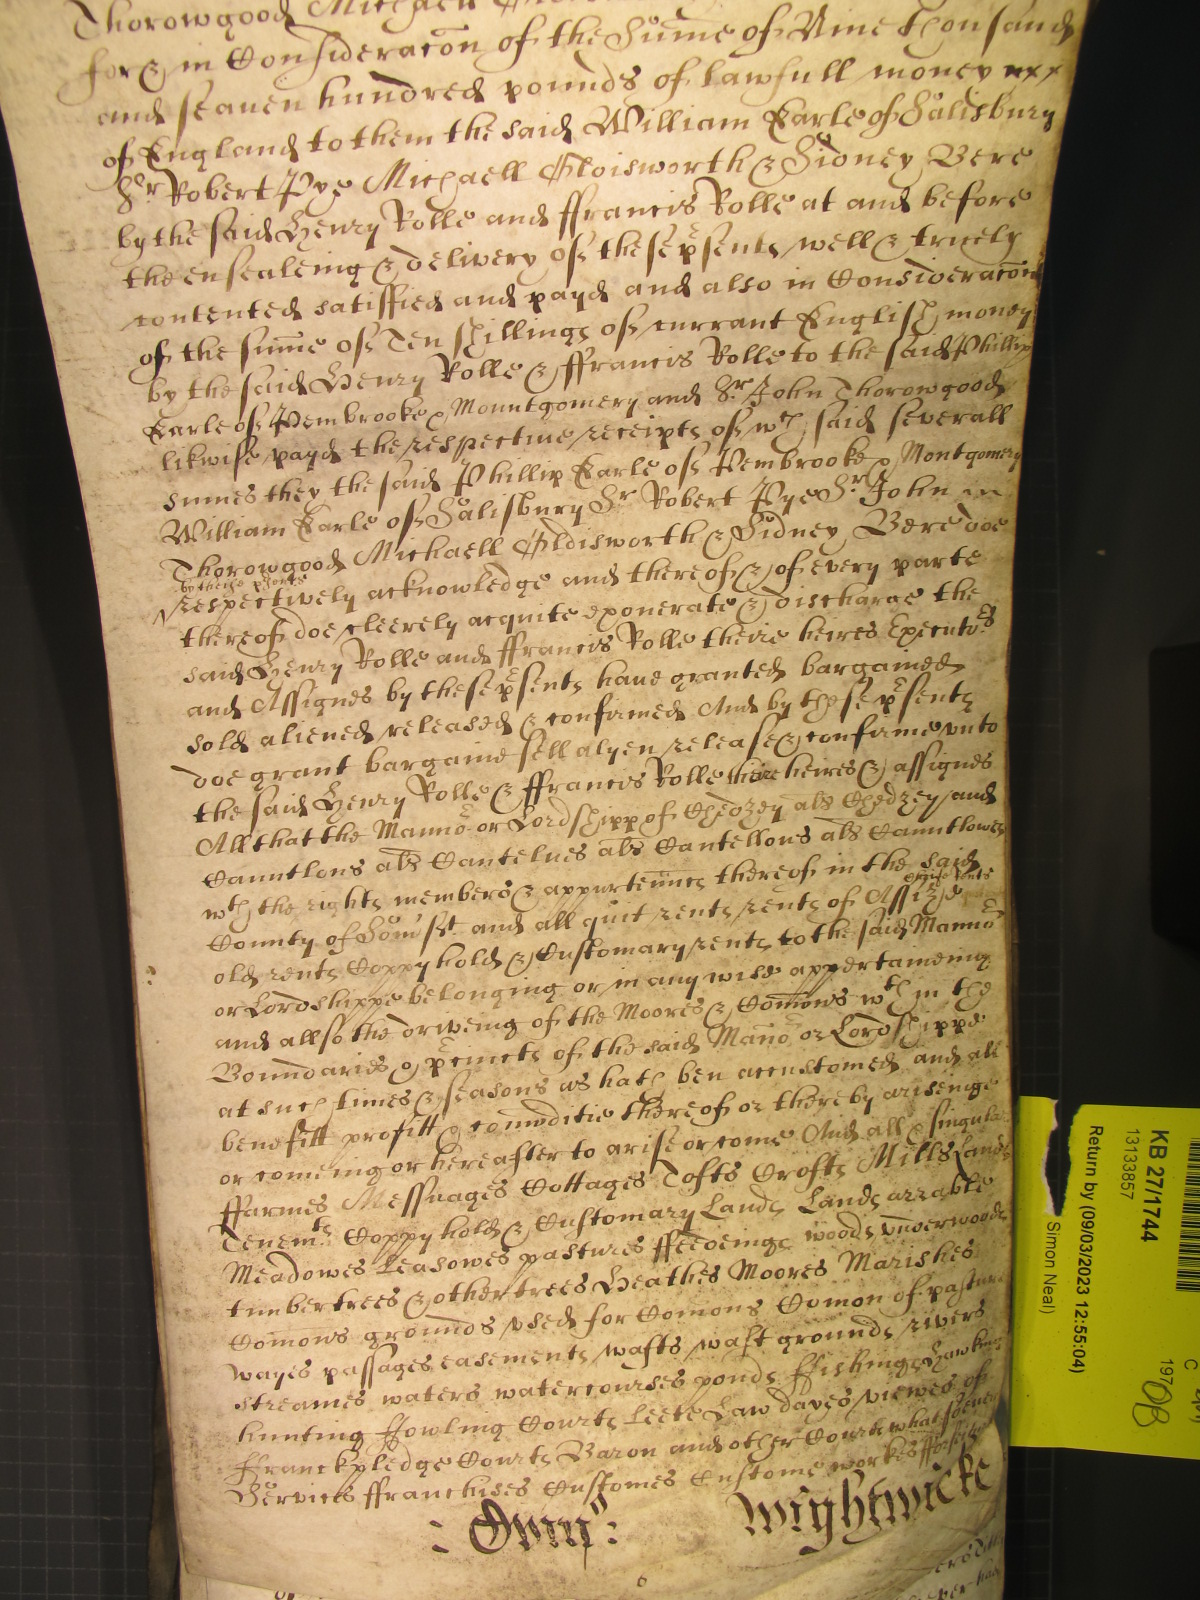 Thorowgood Michaell
for & in Consideracõn of the Sum̃e of Nine thousand
and seaven hundred pounds of lawfull money xxx
of England to them the said William Earle of Salisbury
Sr Robert Pye Michaell Oldisworth & Sidney Bere
by the said Henry Rolle and ffrancis Rolle at and before
the ensealeing & delivery of these p̃sents well & truely
contented satisfied and payd and also in Consideracõn
of the sum̃e of Ten shillings of currant English money
by the said Henry Rolle & ffrancis Rolle to the said Phillip
Earle of Pembrooke & Mountgomery and Sr John Thorowgood
likwise payd the respective receipts of wch said severall
sum̃es they the said Phillip Earle of Pembrooke & Montgomery
William Earle of Salisbury Sr Robert Pye Sr John
Thorowgood Michaell Oldisworth & Sidney Bere doe
by theise p̃sents
respectively acknowledge and thereof & of every parte
thereof doe cleerely acquite exonerate & discharge the
said Henry Rolle and ffrancis Rolle theire heires Executrs
and Assignes by these p̃sents have granted bargained
sold aliened released & confirmed And by these p̃sents
doe grant bargaine sell alyen release & confirme unto
the said Henry Rolle & ffrancis Rolle theire heires & assignes
All that the Manno r or Lordshipp of Chedzey als Chedzey and
Cauntlons als Cantelues als Cantellons als Cauntlowes
wth the rights members & appurtenn̄cs thereof in the said
County of Som̃sett and all quit rents rents of Assize
old rents Coppyhold & Customary rents to the said Manno r
or Lordshippe belonging or in any wise appertaineing
and allso the driveing of the Moores & Com̃ons wth in the
Boundaries & p̃cincts of the said Manno r or Lordshippe
at such times & seasons as hath ben accustomed and all
benefitt profitt & com̃oditie thereof or thereby ariseinge
or comeing or hereafter to arise or come And all & singular
ffarmes Messuages Cottages Tofts Crofts Mills Lands
Tenemts Coppyhold & Customary Lands Lands arrable
Meadowes Leasowes pastures ffeedeings woods underwoods
timbertrees & other trees Heathes Moores Marishes
Com̃ons grounds used for Com̃ons Com̃on of pasture
wayes passages easements wasts wast grounds rivers
streames waters watercourses ponds ffishings Hawking
hunting ffowling Courts Leete Law dayes viewes of
ffranckpledge Courts Baron and other Courts whatsoever
Services ffranchises Customes Custome workes
Wightwicke
KB 27/1744
13133857
Return by (09/03/2023 12:55:04)
Simon Neal)